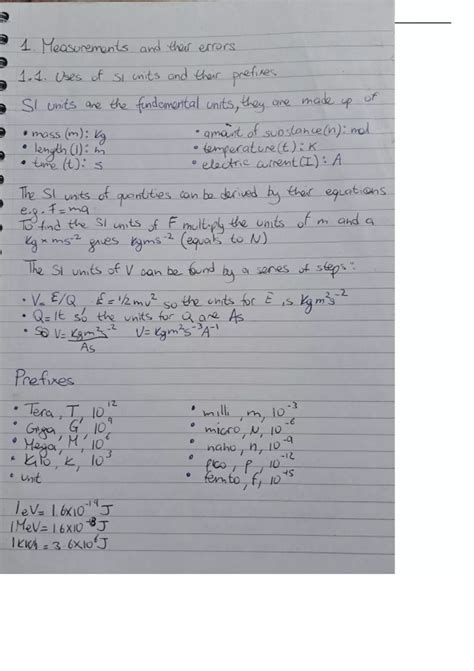 1. Measurements and their errors
1.1. Uses of SI units and their prefixes
SI units are the fundamental units, they are made up of
• mass (m): kg
• amount of substance (n): mol
• length (l): m
• temperature (t): K
• time (t): s
• electric current (I): A
The SI units of quantities can be derived by their equations
e.g. F=ma
To find the SI units of F multiply the units of m and a
kg × ms⁻² gives kgms⁻² (equals to N)
The SI units of V can be found by a series of steps:
• V= E/Q, E=1/2mv² so the units for E is kgm²s⁻²
• Q=It so the units for Q are As
• So V= kgm²s⁻²/As V=kgm²s⁻³A⁻¹
Prefixes
• Tera, T, 10¹²
• Giga, G, 10⁹
• Mega, M, 10⁶
• Kilo, k, 10³
• unit
• milli, m, 10⁻³
• micro, N, 10⁻⁶
• nano, n, 10⁻⁹
• pico, p, 10⁻¹²
• femto, f, 10⁻¹⁵
1eV= 1.6×10⁻¹⁹J
1MeV= 1.6×10⁻¹³J
1kWh = 3.6×10⁶J